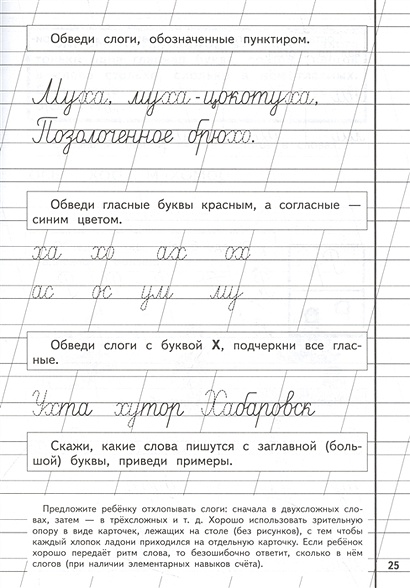 Обведи слоги, обозначенные пунктиром.
Муха, муха-цокотуха,
Позолоченное брюхо.
Обведи гласные буквы красным, а согласные —
синим цветом.
ха хо ах ох
ас ос ум му
Обведи слоги с буквой Х, подчеркни все глас-
ные.
Ухта хутор Хабаровск
Скажи, какие слова пишутся с заглавной (боль-
шой) буквы, приведи примеры.
Предложите ребёнку отхлопывать слоги: сначала в двухсложных сло-
вах, затем — в трёхсложных и т. д. Хорошо использовать зрительную
опору в виде карточек, лежащих на столе (без рисунков), с тем чтобы
каждый хлопок ладони приходился на отдельную карточку. Если ребёнок
хорошо передаёт ритм слова, то безошибочно ответит, сколько в нём
слогов (при наличии элементарных навыков счёта).
25